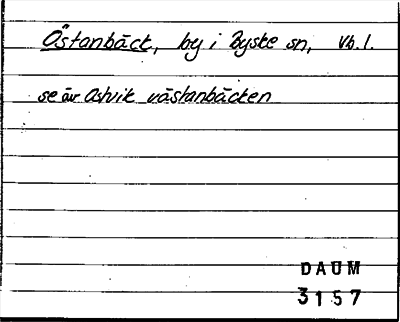 Östanbäck, by i Byske sn, Vb. l.
se äv Ostvik västanbäcken
DAUM
3157